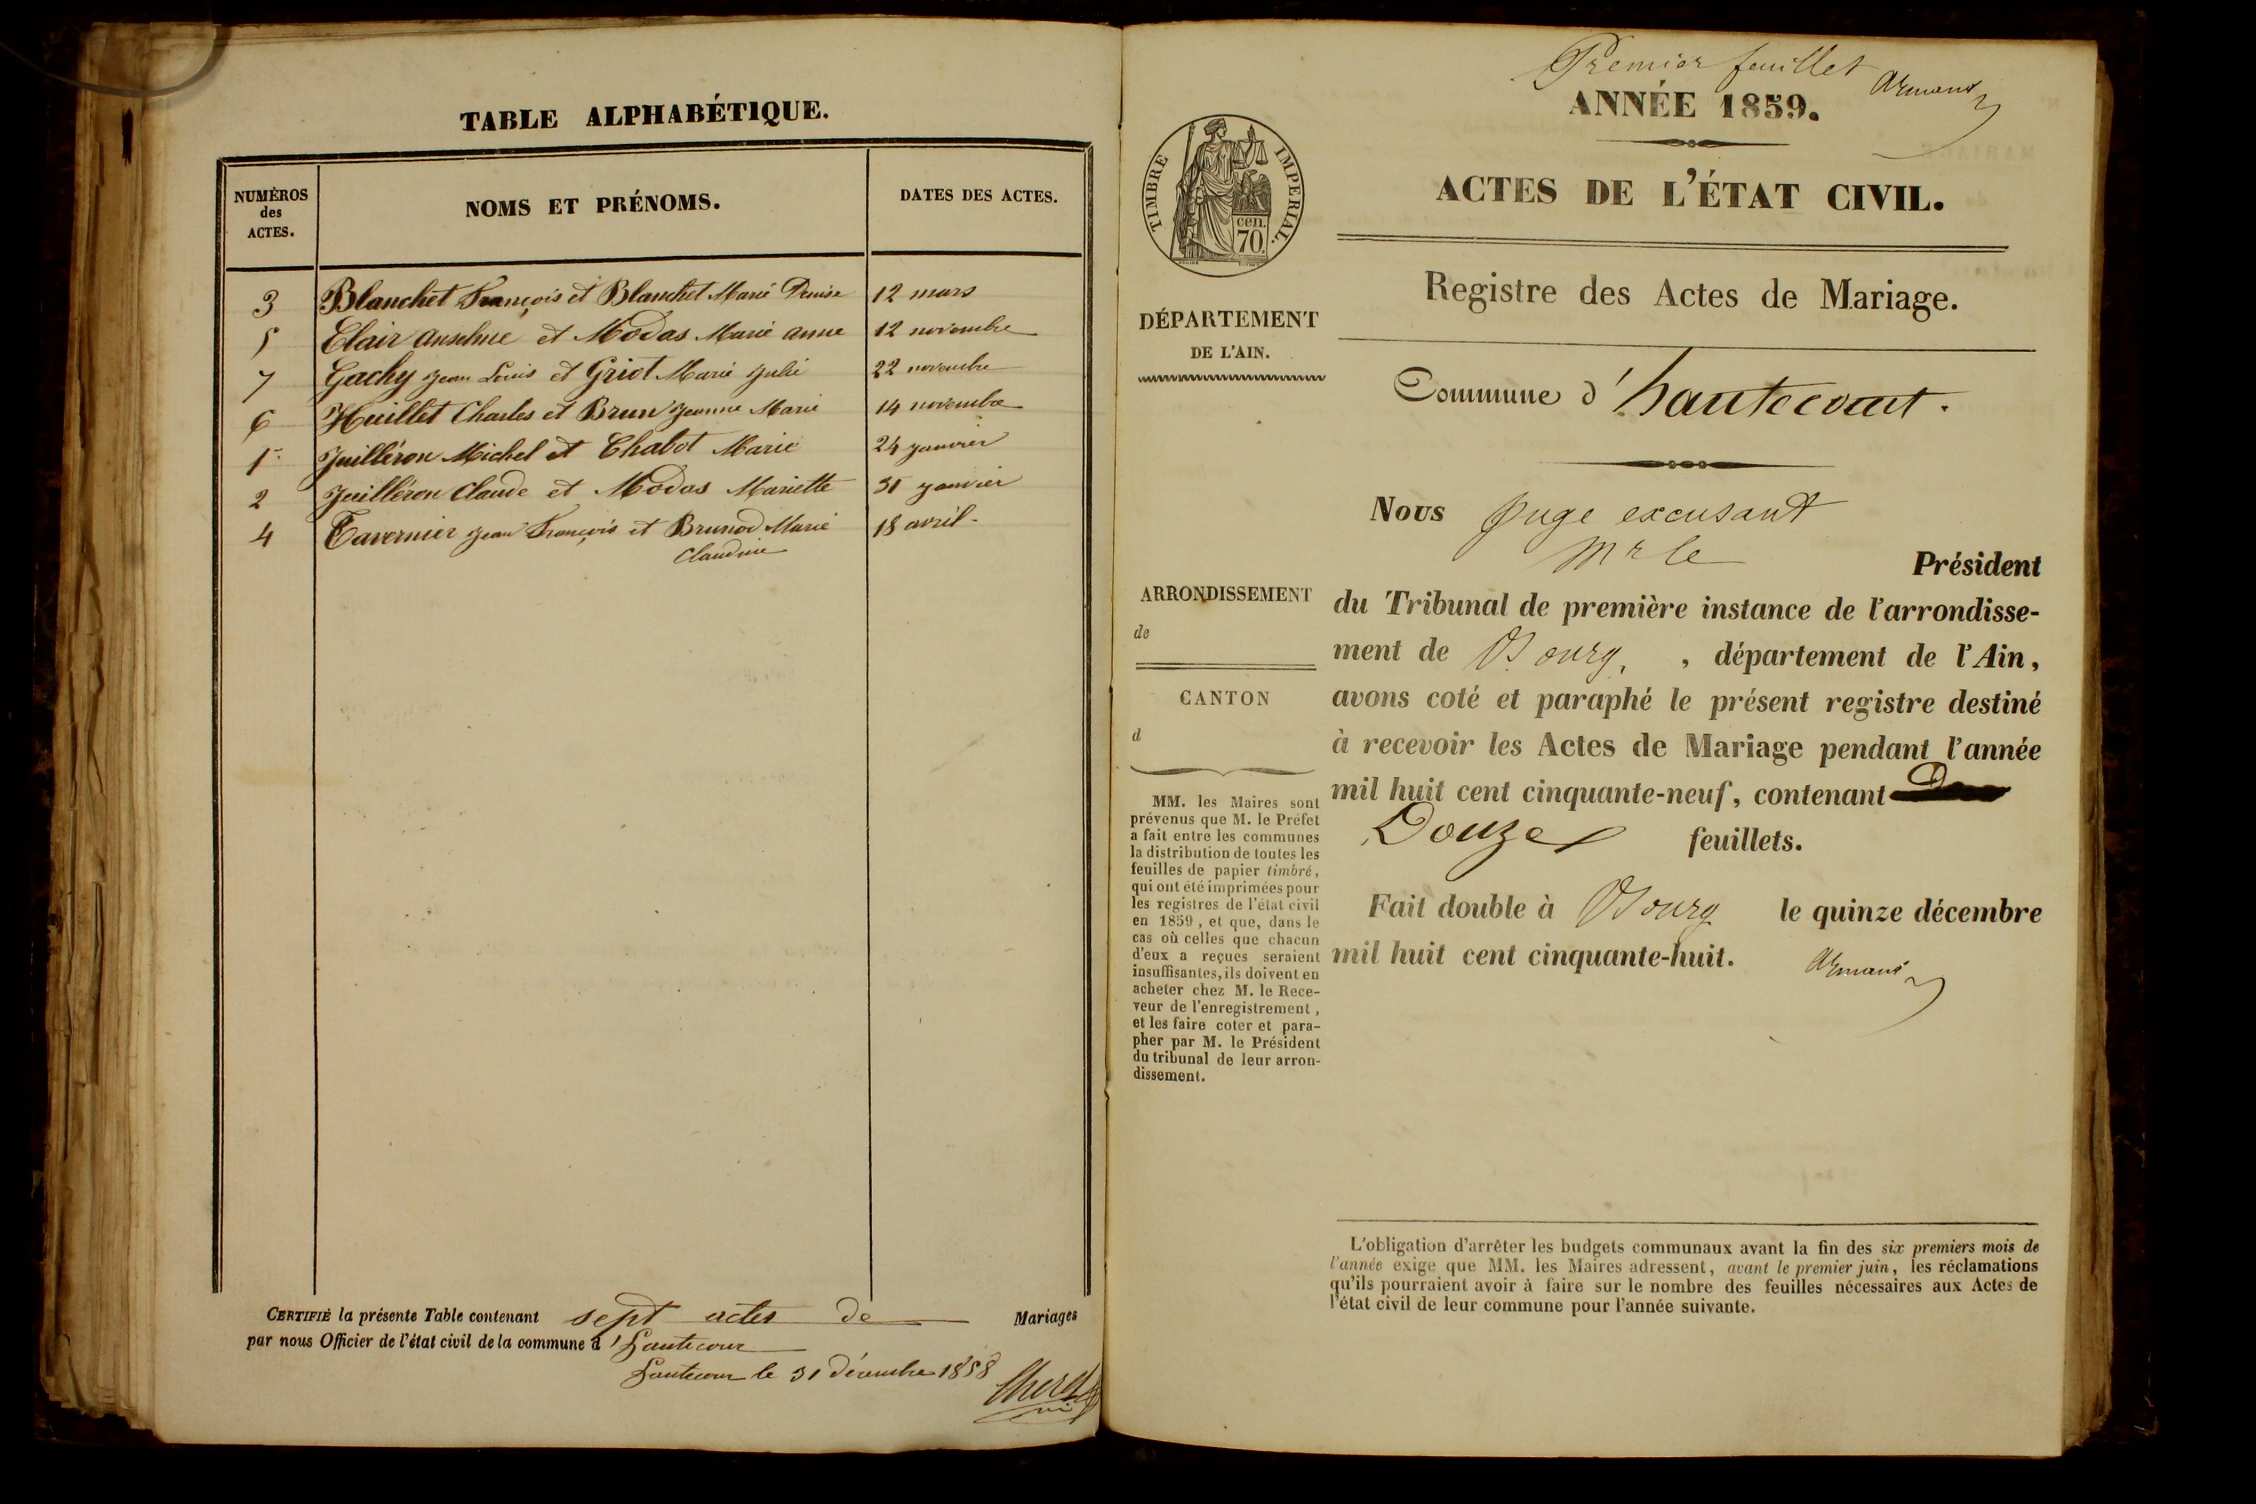 TABLE ALPHABÉTIQUE.
NUMÉROS
des
ACTES.
NOMS ET PRÉNOMS.
DATES DES ACTES.
3 Blanchet François et Blanchet Marie Denise 12 mars
5 Clair anselme et Modas Marie anne 12 novembre
7 Gachy jean Louis et Griot Marie julie 22 novembre
6 Huillet Charles et Brun jeanne Marie 14 novembre
1er juilléron Michel et Chabot Marie 24 janvier
2 juilléron Claude et Modas Mariette 31 janvier
4 Tavernier jean François et Brunod Marie 18 avril.
Claudine
CERTIFIÉ la présente Table contenant sept actes de Mariages
par nous Officier de l'état civil de la commune d'hautecour
hautecour le 31 décembre 1858
Premier feuillet
ANNÉE 1859.
TIMBRE IMPERIAL.
cen.
70
ACTES DE L'ÉTAT CIVIL.
Registre des Actes de Mariage.
DÉPARTEMENT
DE L'AIN.
Commune d'hautecourt.
Nous juge excusant
Mr le
Président
ARRONDISSEMENT
de
CANTON
d
du Tribunal de première instance de l'arrondisse-
ment de Bourg, , département de l'Ain,
avons coté et paraphé le présent registre destiné
à recevoir les Actes de Mariage pendant l'année
mil huit cent cinquante-neuf, contenant
Douze feuillets.
Fait double à Bourg le quinze décembre
mil huit cent cinquante-huit.
MM. les Maires sont
prévenus que M. le Préfet
a fait entre les communes
la distribution de toutes les
feuilles de papier timbré,
qui ont été imprimées pour
les registres de l'état civil
en 1859, et que, dans le
cas où celles que chacun
d'eux a reçues seraient
insuffisantes, ils doivent en
acheter chez M. le Rece-
veur de l'enregistrement,
et les faire coter et para-
pher par M. le Président
du tribunal de leur arron-
dissement.
L'obligation d'arrêter les budgets communaux avant la fin des six premiers mois de
l'année exige que MM. les Maires adressent, avant le premier juin, les réclamations
qu'ils pourraient avoir à faire sur le nombre des feuilles nécessaires aux Actes de
l'état civil de leur commune pour l'année suivante.